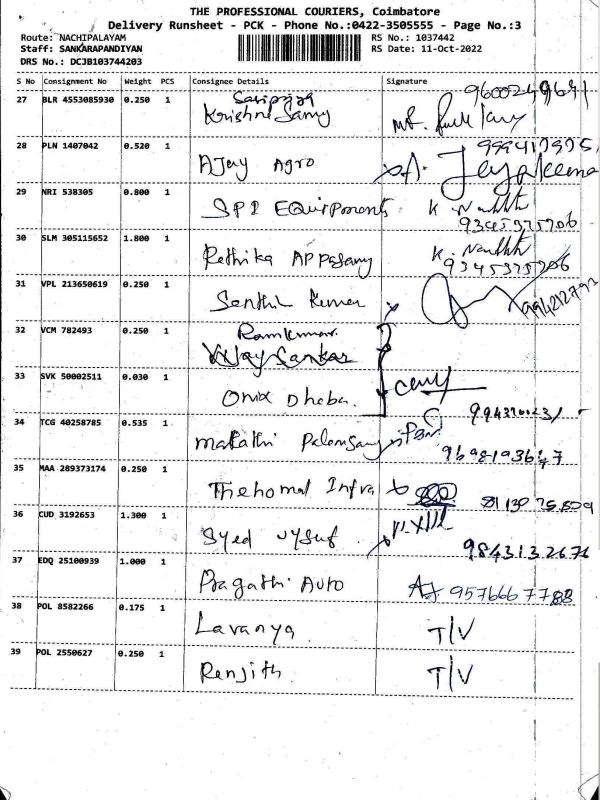 THE PROFESSIONAL COURIERS, Coimbatore
Delivery Runsheet - PCK - Phone No.:0422-3505555 - Page No.:3
Route: NACHIPALAYAM RS No.: 1037442
Staff: SANKARAPANDIYAN RS Date: 11-Oct-2022
DRS No.: DCJB103744203
S No Consignment No Weight PCS Consignee Details Signature
27 BLR 4553085930 0.250 1 Krishna Samy
28 PLN 1407042 0.520 1 AJay Agro
29 NRI 538305 0.800 1 SPI EQuipments 9345325206
30 SLM 305115652 1.800 1 Rethika APPasamy 9345325206
31 VPL 213650619 0.250 1 Senthil Kumar
32 VCM 782493 0.250 1 Ramkumar
33 SVK 50002511 0.030 1 Onix Dheba.
34 TCG 40258785 0.535 1
35 MAA 289373174 0.250 1 Thehomat Infra
36 CUD 3192653 1.300 1 Syed 9843132676
37 EDQ 25100939 1.000 1 Pragathi Auto 9576667788
38 POL 8582266 0.175 1 Lavanya T/V
39 POL 2550627 0.250 1 Renjith T/V